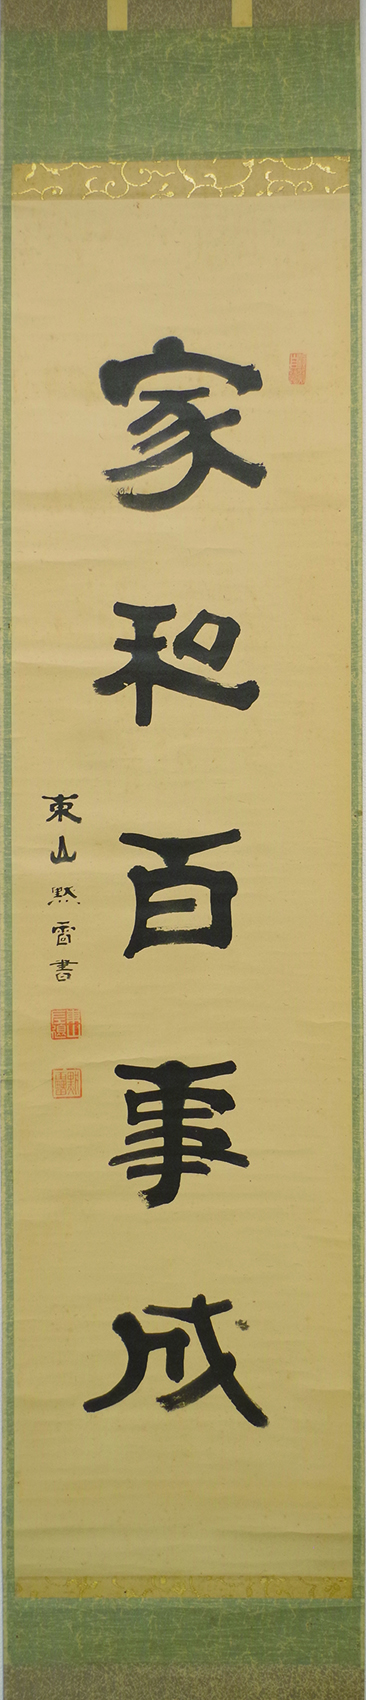 家和百事成
東山黙雷書